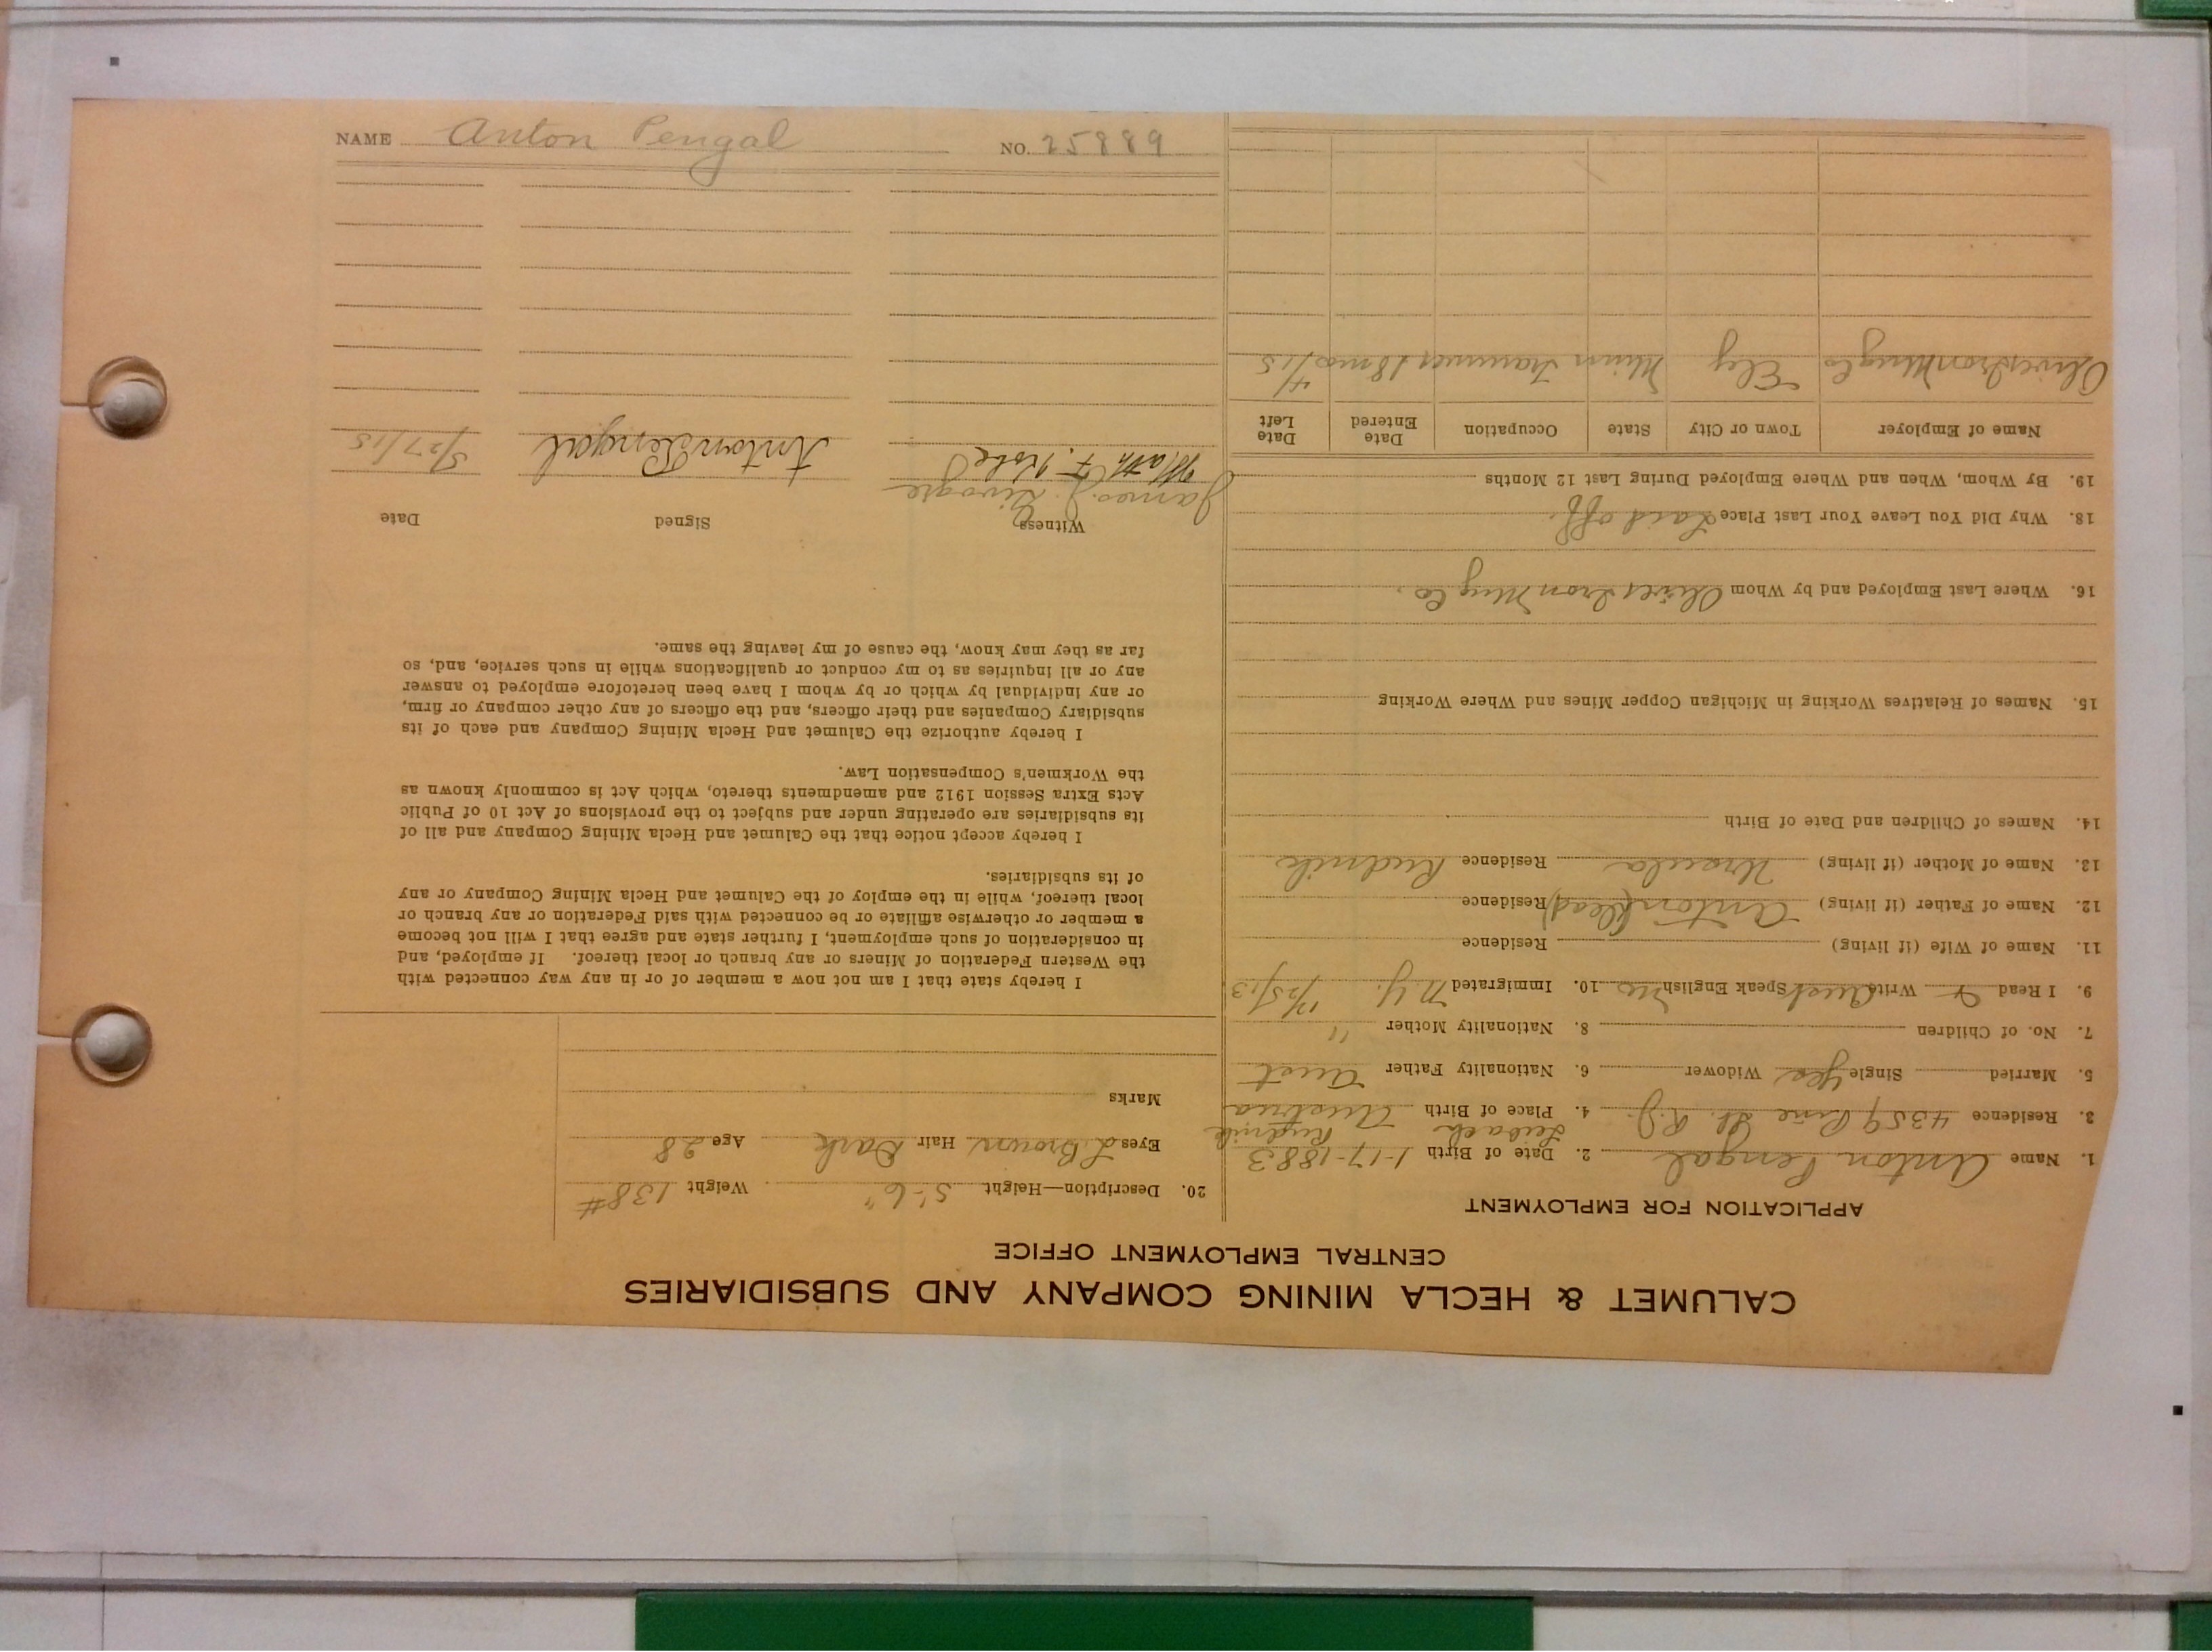 CALUMET & HECLA MINING COMPANY AND SUBSIDIARIES
CENTRAL EMPLOYMENT OFFICE
APPLICATION FOR EMPLOYMENT
1. Name Anton Pengal 2. Date of Birth 1-17-1883
Leibach Rudnik
3. Residence 4359 Pine St. R.J. 4. Place of Birth Austria
5. Married Single Yes Widower 6. Nationality Father Aust
7. No. of Children 8. Nationality Mother "
9. I Read & Write Aust Speak English No 10. Immigrated N.Y.
11. Name of Wife (if living) Residence
12. Name of Father (if living) Anton (dead) Residence
13. Name of Mother (if living) Ursula Residence Rudnik
14. Names of Children and Date of Birth
15. Names of Relatives Working in Michigan Copper Mines and Where Working
16. Where Last Employed and by Whom Oliver Iron Mng Co.
18. Why Did You Leave Your Last Place Laid off.
19. By Whom, When and Where Employed During Last 12 Months
Name of Employer Town or City State Occupation Date Entered Date Left
Oliver Iron Mng Co Ely Minn Trammer 18 mos 4/15
20. Description—Height 5'-6" Weight 138#
Eyes L Brown Hair Dark Age 28
Marks
I hereby state that I am not now a member of or in any way connected with
the Western Federation of Miners or any branch or local thereof. If employed, and
in consideration of such employment, I further state and agree that I will not become
a member or otherwise affiliate or be connected with said Federation or any branch or
local thereof, while in the employ of the Calumet and Hecla Mining Company or any
of its subsidiaries.
I hereby accept notice that the Calumet and Hecla Mining Company and all of
its subsidiaries are operating under and subject to the provisions of Act 10 of Public
Acts Extra Session 1912 and amendments thereto, which Act is commonly known as
the Workmen's Compensation Law.
I hereby authorize the Calumet and Hecla Mining Company and each of its
subsidiary Companies and their officers, and the officers of any other company or firm,
or any individual by which or by whom I have been heretofore employed to answer
any or all inquiries as to my conduct or qualifications while in such service, and, so
far as they may know, the cause of my leaving the same.
Witness Signed Date
James J.
Math F. Kobe Anton Pengal 5/27/15
NAME Anton Pengal NO. 25889